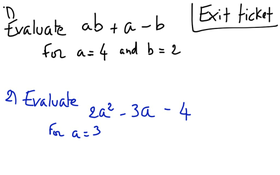 1)
Evaluate ab + a - b
for a = 4 and b = 2
Exit ticket
2) Evaluate
2a² - 3a - 4
for a = 3